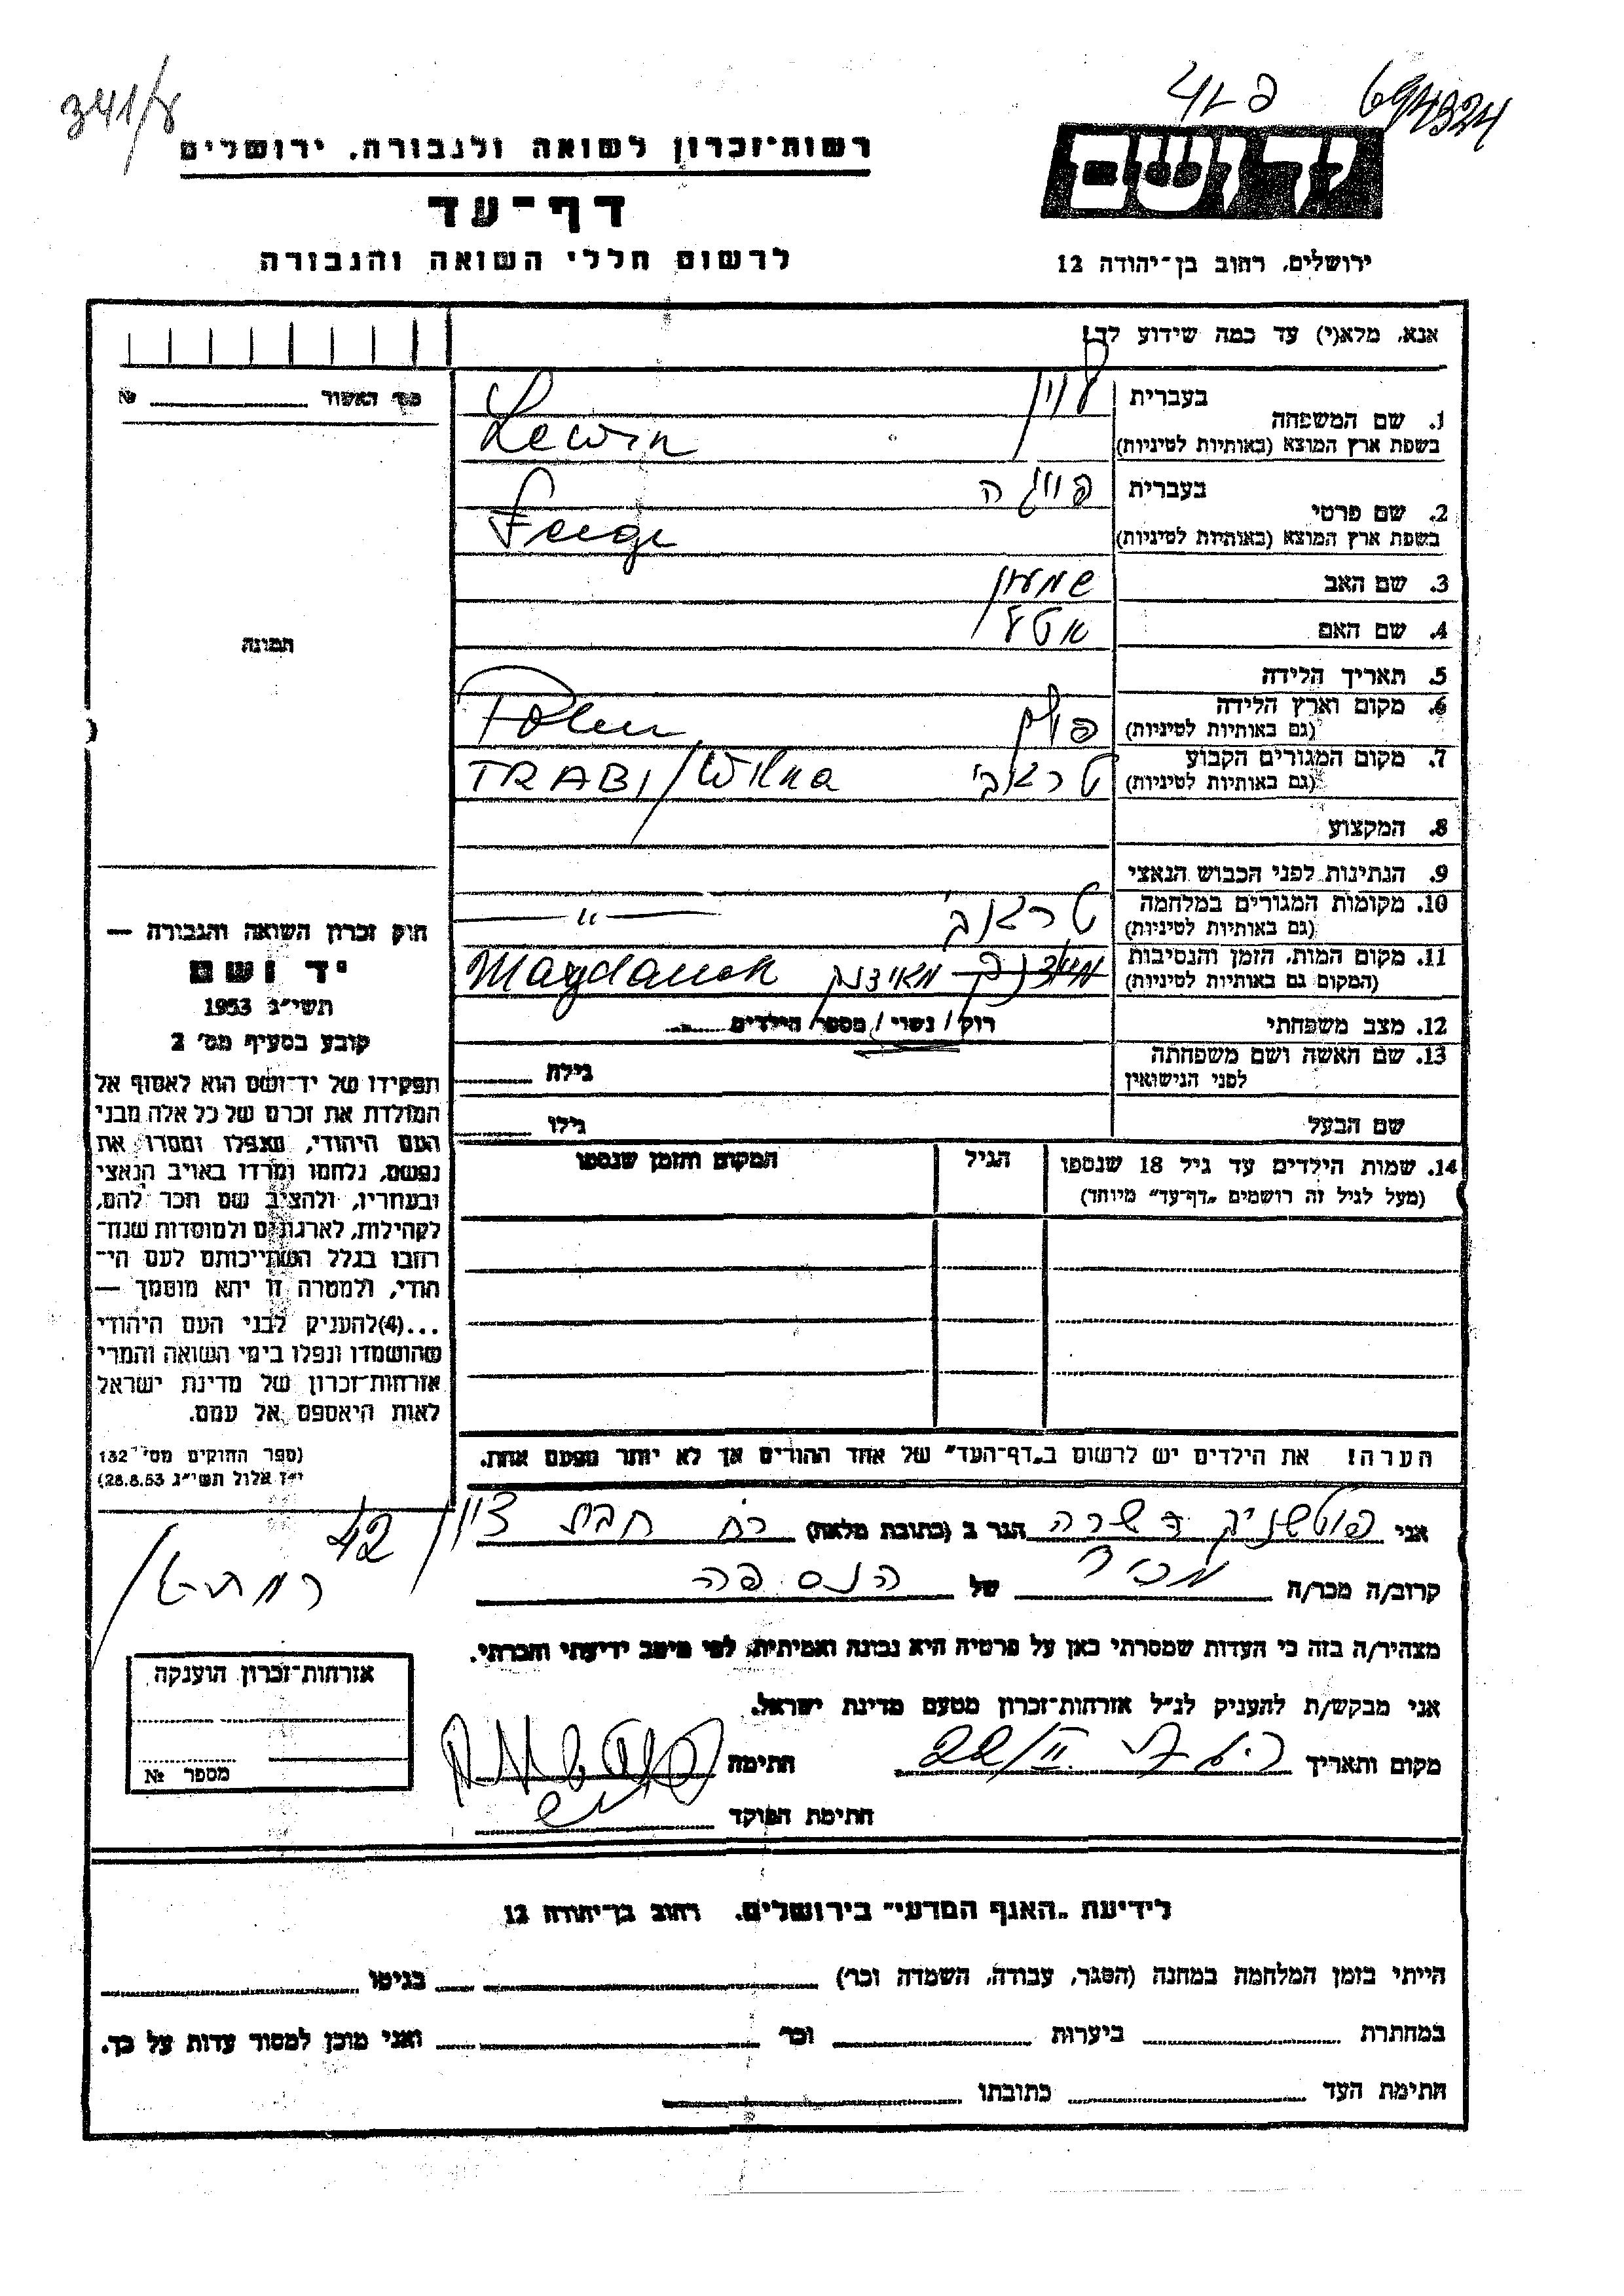 341/8
694324
רשות-זכרון לשואה ולגבורה. ירושלים
יד ושם
דף-עד
לרשום חללי השואה והגבורה
ירושלים, רחוב בן-יהודה 12
אנא, מלא(י) עד כמה שידוע לך!
מס׳ האשור № 
1. שם המשפחה בעברית לוין
בשפת ארץ המוצא (באותיות לטיניות) Lewin
2. שם פרטי בעברית פייגה
בשפת ארץ המוצא (באותיות לטיניות) Feige
3. שם האב שמעון
4. שם האם
תמונה
5. תאריך הלידה
6. מקום וארץ הלידה פולין Polen
(גם באותיות לטיניות)
7. מקום המגורים הקבוע טראבי TRABI/Wilna
(גם באותיות לטיניות)
8. המקצוע
9. הנתינות לפני הכבוש הנאצי
10. מקומות המגורים במלחמה טראבי — " —
(גם באותיות לטיניות)
11. מקום המות, הזמן והנסיבות מאידנק Maydanek
(המקום גם באותיות לטיניות)
12. מצב משפחתי רוק / נשוי / מספר הילדים
13. שם האשה ושם משפחתה
לפני הנישואין גילה
שם הבעל גילו
14. שמות הילדים עד גיל 18 שנספו הגיל המקום והזמן שנספו
(מעל לגיל זה רושמים „דף-עד" מיוחד)
הערה! את הילדים יש לרשום ב„דף-העד" של אחד ההורים אך לא יותר מפעם אחת.
חוק זכרון השואה והגבורה —
יד ושם
תשי״ג 1953
קובע בסעיף מס׳ 2
תפקידו של יד-ושם הוא לאסוף אל
המולדת את זכרם של כל אלה מבני
העם היהודי, שנפלו ומסרו את
נפשם, נלחמו ומרדו באויב הנאצי
ובעוזריו, ולהציב שם וזכר להם,
לקהילות, לארגונים ולמוסדות שנח-
רבו בגלל השתייכותם לעם הי-
הודי, ולמטרה זו יהא מוסמך —
...(4) להעניק לבני העם היהודי
שהושמדו ונפלו בימי השואה והמרי
אזרחות-זכרון של מדינת ישראל
לאות היאספם אל עמם.
(ספר החוקים מס׳ 132
י״ז אלול תשי״ג 28.8.53)
אני שרה הגר ב (כתובת מלאה) רח חבת ציון 42
רמת גן
קרוב/ה מכר/ה מכיר של הנספה
מצהיר/ה בזה כי העדות שמסרתי כאן על פרטיה היא נכונה ואמיתית, לפי מיטב ידיעתי והכרתי.
אני מבקש/ת להעניק לנ״ל אזרחות-זכרון מטעם מדינת ישראל.
מקום ותאריך חתימה
חתימת הפוקד
אזרחות-זכרון הוענקה
מספר №
לידיעת „האגף המדעי" בירושלים. רחוב בן-יהודה 12
הייתי בזמן המלחמה במחנה (הסגר, עבודה, השמדה וכו׳) בגיטו
במחתרת ביערות וכו׳ ואני מוכן למסור עדות על כך.
חתימת העד כתובתו